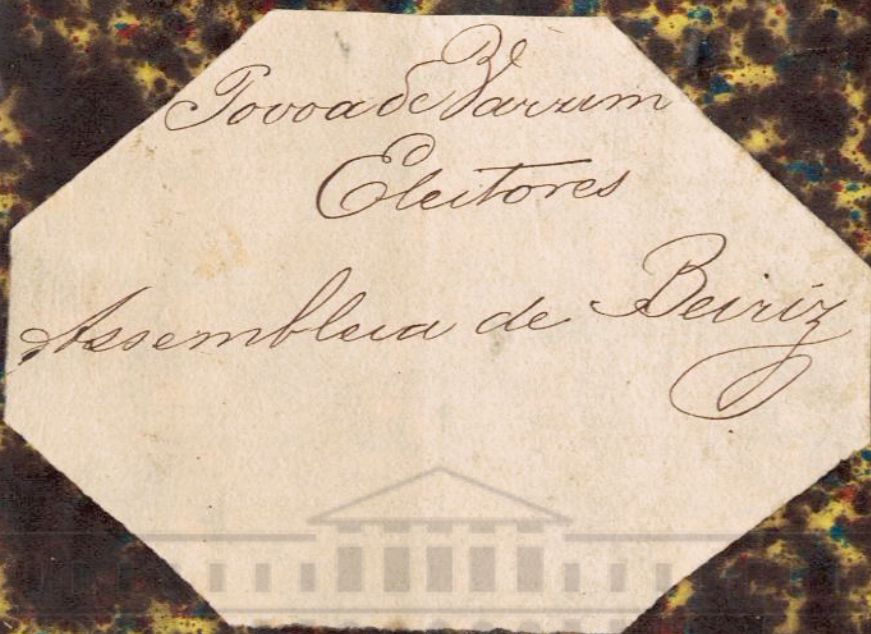 Povoa de Varzim
Eleitores
Assembleia de Beiriz